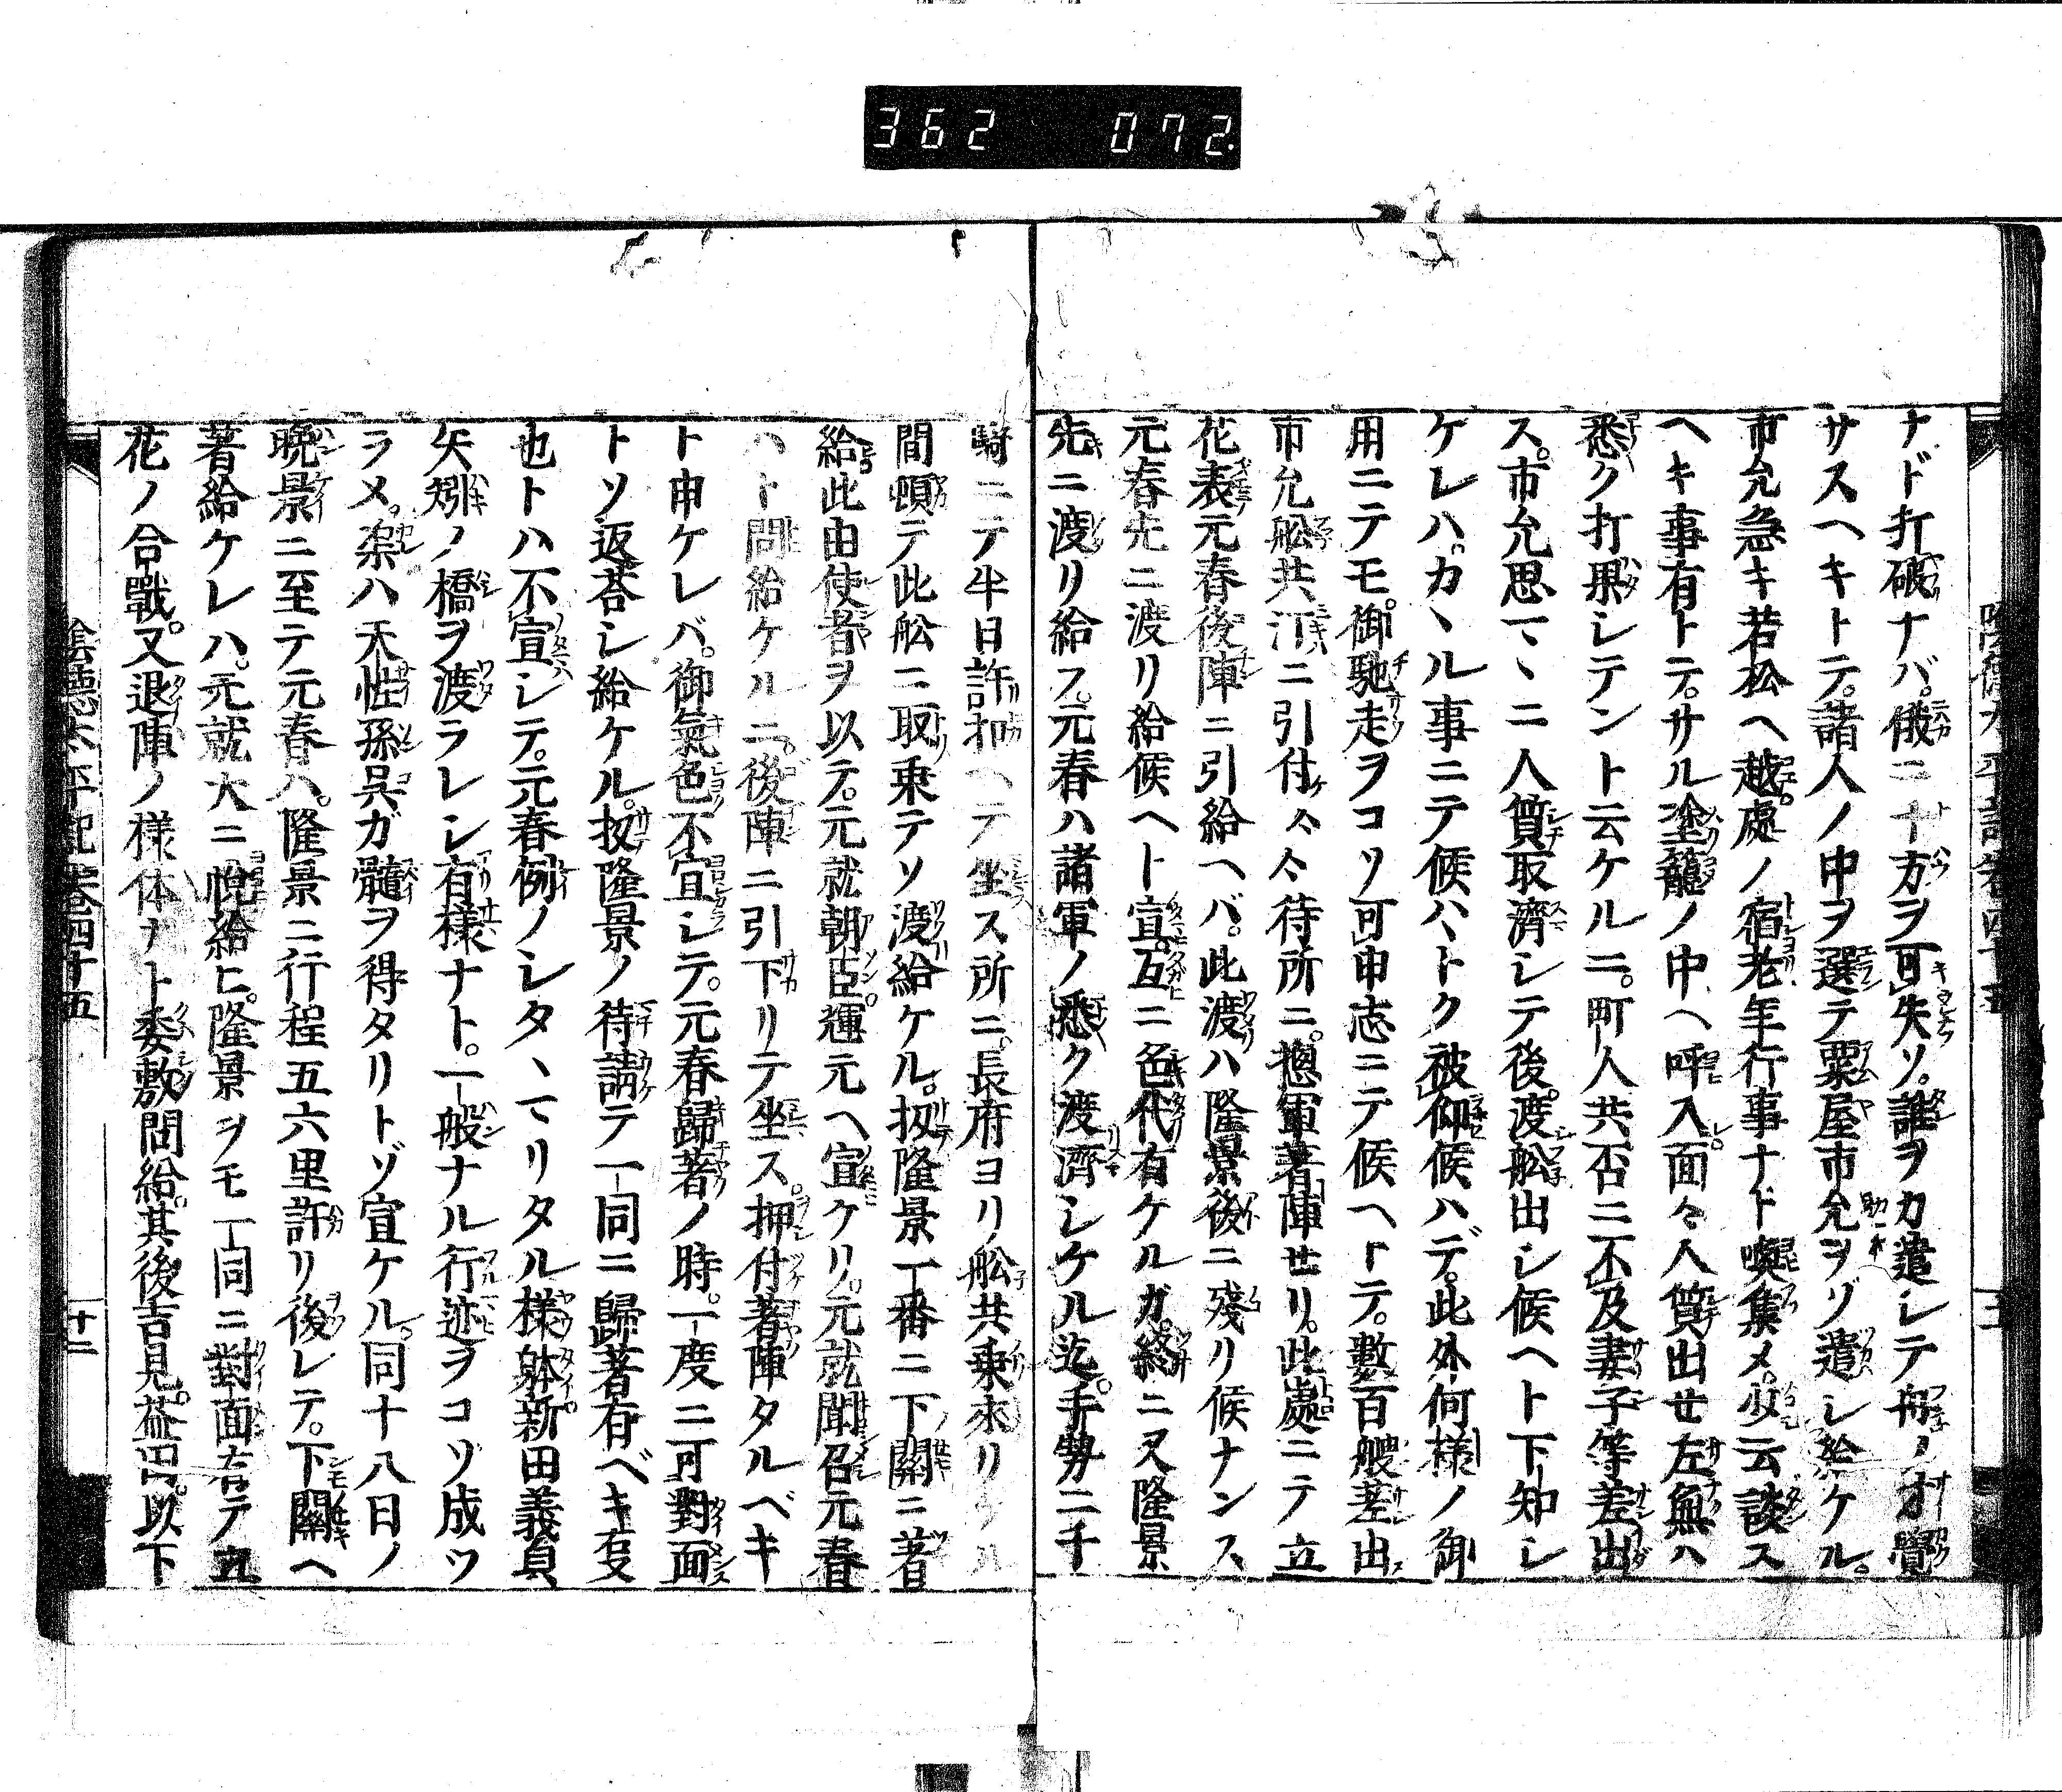 362 072
ナド打破ナバ。俄ニ十方ヲ可失ソ。誰ヲカ遣レテ舟ノ才覺
サスヘキトテ。諸人ノ中ヲ選テ粟屋市允ヲゾ遣レ給ケル。
市允急キ若松ヘ越。處ノ宿老年行事ナド喚集メ。少云談ス
ヘキ事有トテ。サル塗籠ノ中ヘ呼入。面々人質出せ左無ハ
悉ク打果レテント云ケルニ。町人共否ニ不及妻子等差出
ス。市允思マヽニ人質取濟レテ後。渡舩出シ候ヘト下知シ
ケレハ。カヽル事ニテ候ハヽトク被仰候ハデ。此外何様ノ御
用ニテモ。御馳走ヲコソ可申志ニテ候ヘトテ。數百艘差出
市允舩共汀ニ引付々々待所ニ。摠軍著陣せリ。此處ニテ立
花表元春後陣ニ引給ヘバ。此渡ハ隆景後ニ殘リ候ナンス
元春先ニ渡リ給候ヘト宣。互ニ色代有ケルガ。終ニ又隆景
先ニ渡リ給フ。元春ハ諸軍ノ悉ク渡濟シケル迄。手勢二千
﨑ニテ半日許扣ヘテ坐ス所ニ。長府ヨリ舩共乗來リケル
間頓テ此舩ニ取乗テソ渡給ケル。扨隆景一番ニ下關ニ著
給此由使者ヲ以テ。元就朝臣。輝元ヘ宣ケリ。元就聞召元春
ハト問給ケルニ。後陣ニ引下リテ坐ス。押付著陣タルベキ
ト申ケレバ。御氣色不宜レテ。元春歸著ノ時。一度ニ可對面
トソ返荅シ給ケル。扨隆景ノ待請テ一同ニ歸著有ベキ叓
也トハ不宣レテ。元春例ノレタヽマリタル様躰。新田義貞
矢矧ノ橋ヲ渡ラレシ有様ナト。一般ナル行迹ヲコソ成ツ
ラメ。渠ハ天性孫呉ガ髓ヲ得タリトゾ宣ケル。同十八日ノ
晩景ニ至テ元春ハ。隆景ニ行程五六里許リ後レテ。下關ヘ
著給ケレハ。元就大ニ悅給ヒ。隆景ヲモ一同ニ對面有テ立
花ノ合戰。又退陣ノ様体ナト委敷問給。其後吉見。益田。以下
陰德太平記卷四十五
十二